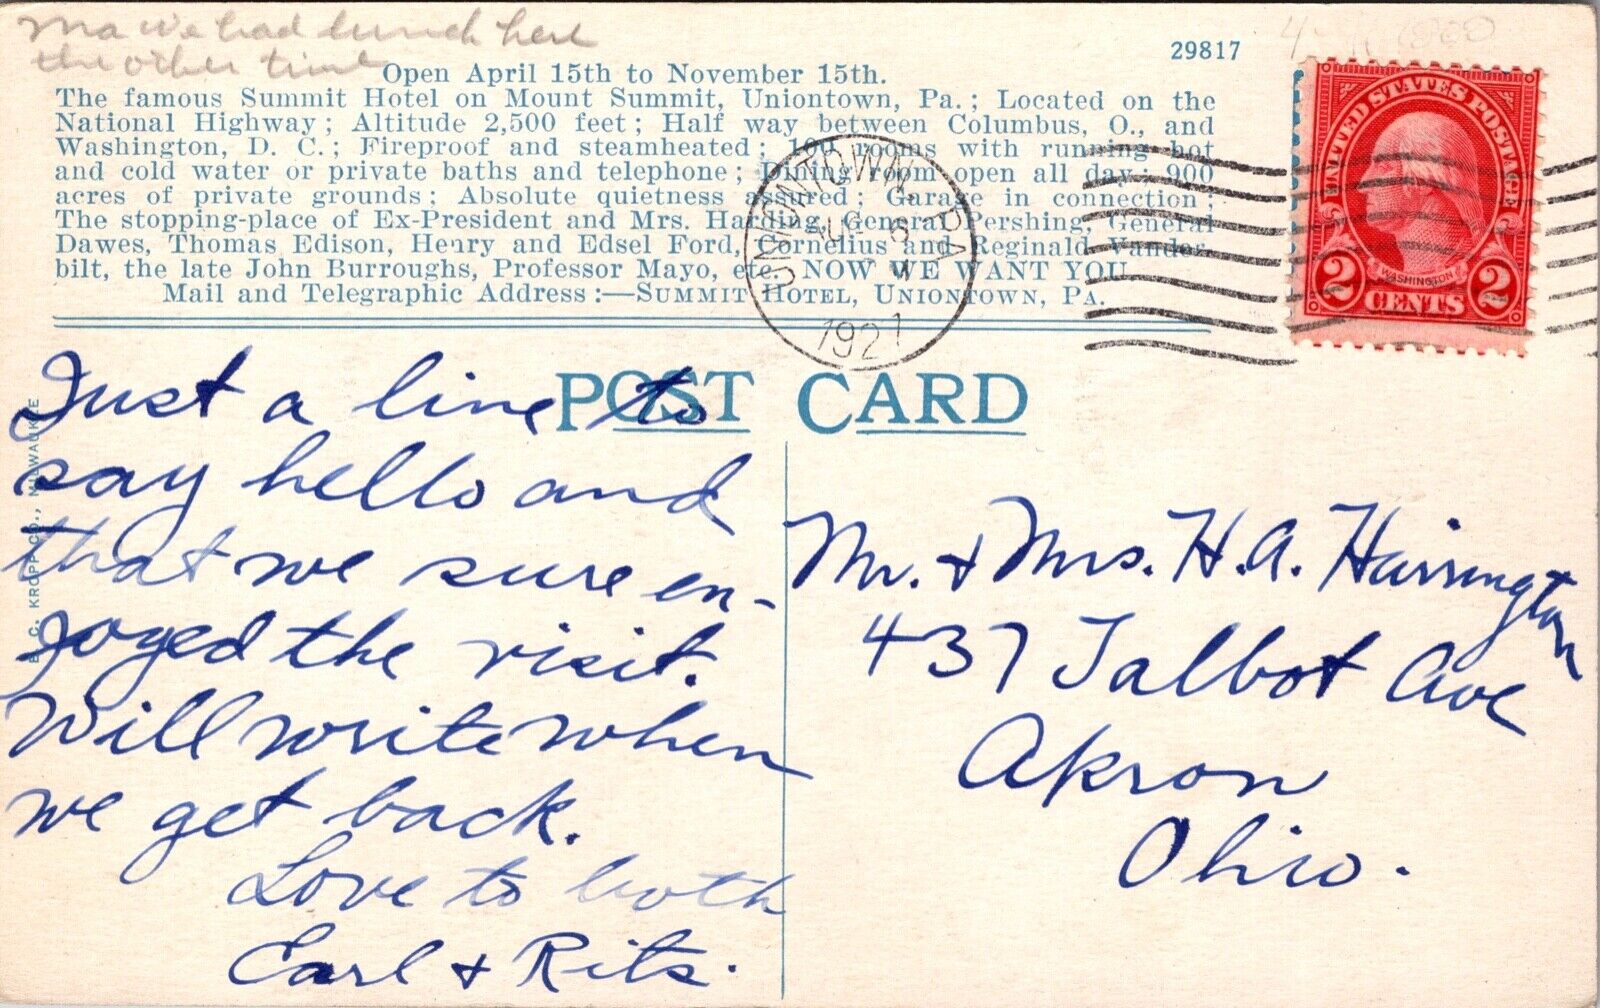 Ma we had lunch here
the other time
29817
Open April 15th to November 15th.
The famous Summit Hotel on Mount Summit, Uniontown, Pa.; Located on the
National Highway; Altitude 2,500 feet; Half way between Columbus, O., and
Washington, D. C.; Fireproof and steamheated; 100 rooms with running hot
and cold water or private baths and telephone; Dining room open all day; 900
acres of private grounds; Absolute quietness assured; Garage in connection;
The stopping-place of Ex-President and Mrs. Harding, General Pershing, General
Dawes, Thomas Edison, Henry and Edsel Ford, Cornelius and Reginald Vander-
bilt, the late John Burroughs, Professor Mayo, etc. NOW WE WANT YOU
Mail and Telegraphic Address:—SUMMIT HOTEL, UNIONTOWN, PA.
UNIONTOWN, PA.
AUG 5
1927
UNITED STATES POSTAGE
WASHINGTON
2 CENTS 2
POST CARD
E. C. KROPP CO., MILWAUKEE
Just a line to
say hello and
that we sure en-
joyed the visit.
Will write when
we get back.
Love to both
Earl & Rita.
Mr. & Mrs. H. A. Harrington
437 Talbot Ave
Akron
Ohio.